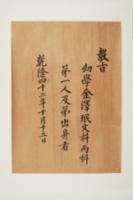 敎旨
幼學金澤珉文科丙科
第一人及第出身者
乾隆四十二年十月十五日